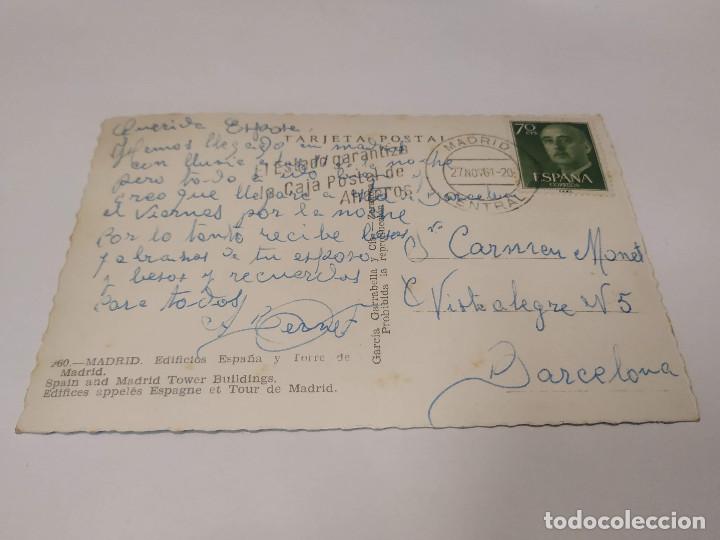 TARJETA POSTAL
Querida Esposa
Hemos llegado en madrid
con lluvia de noche
pero todo a ido bien
creo que llegare a Barcelona
el Viernes por la noche
Por lo tanto recibe besos
y abrazos de tu esposo
y besos y recuerdos
para todos
El Estado garantiza
la Caja Postal de
Ahorros
MADRID
27 NOV 61-20
CENTRAL
70 CTS
ESPAÑA
CORREOS
Sra Carmen Monet
C Vistalegre Nº 5
Barcelona
García Garrabella y Cía. Zaragoza
Prohibida la reproducción
260.—MADRID. Edificios España y Torre de
Madrid.
Spain and Madrid Tower Buildings.
Edifices appelés Espagne et Tour de Madrid.
todocoleccion
todocoleccion.net